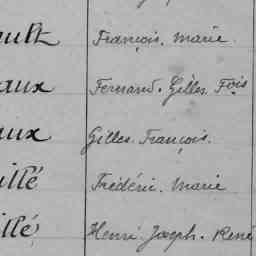 ault François. Marie
aux Fernand. Gilles. Fois
aux Gilles. François.
illé Frédéric. Marie
illé Henri Joseph. René